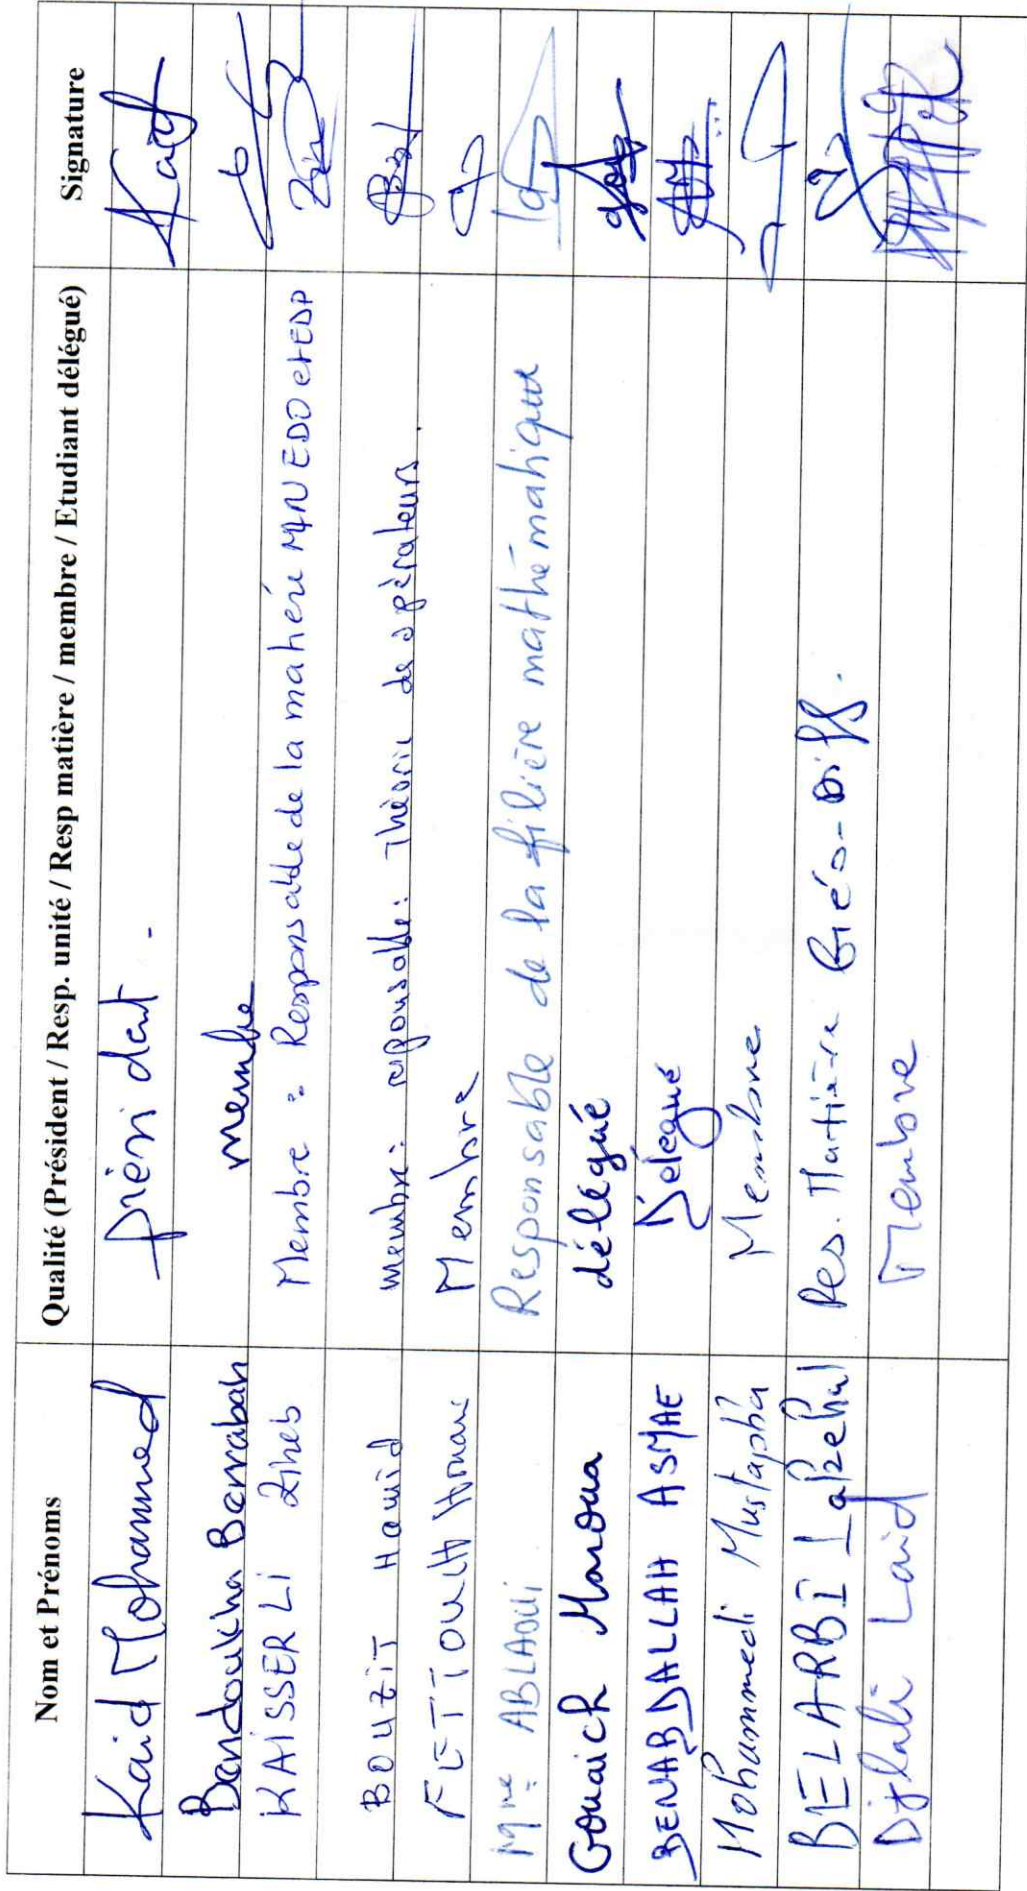 Nom et Prénoms Qualité (Président / Resp. unité / Resp matière / membre / Etudiant délégué) Signature
Kaid Mohammed président - Kaid
Bendoukha Berrabah membre
KAISSERLI Zineb Membre : Responsable de la matière MAN EDO et EDP
BOUZIT Hamid membre: responsable: Théorie des opérateurs.
FETTOUH Membre
Mme ABLAOUI Responsable de la filière mathématique
Gouaich Maroua délégué
BENABDALLAH ASMAE Délégué
Mohammedi Mustapha Membre
BELARBI Lakehal Res. Matière Géo-Diff.
Djilali Laid Membre